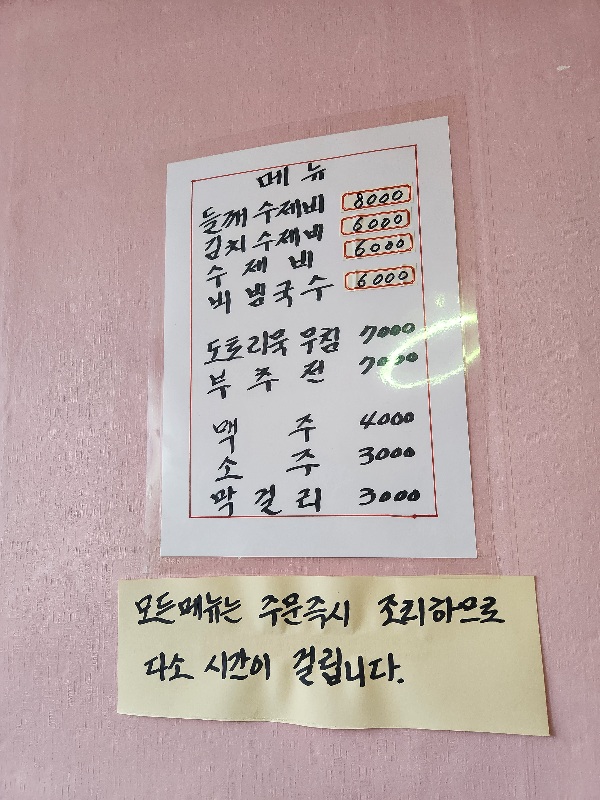 메뉴
들깨수제비 8000
김치수제비 6000
수제비 6000
비빔국수 6000
도토리묵무침 7000
부추전 7000
맥주 4000
소주 3000
막걸리 3000
모든메뉴는 주문즉시 조리하므로
다소 시간이 걸립니다.